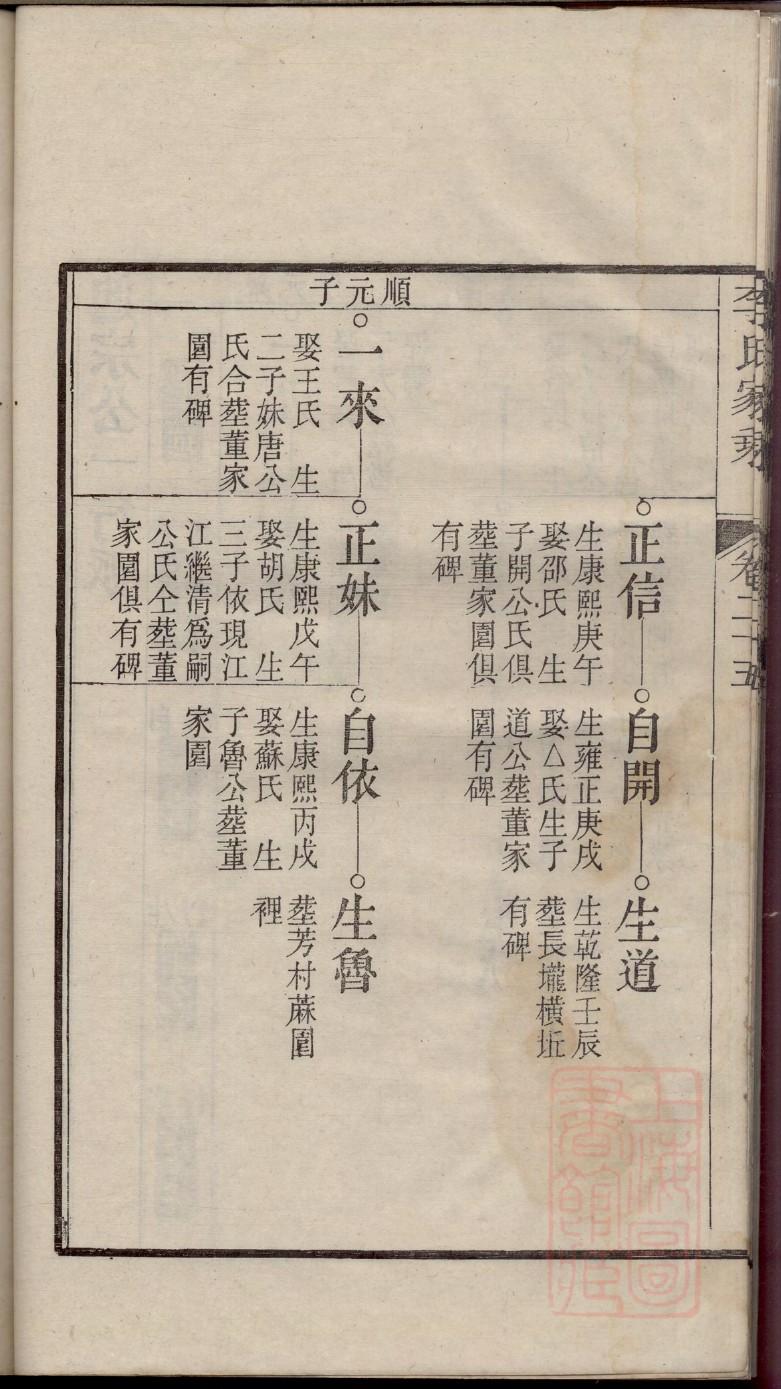 李氏家乘
卷二十五
正信
生康熙庚午
娶邵氏　生
子開公氏俱
塟董家園俱
有碑
自開
生雍正庚戌
娶△氏生子
道公塟董家
園有碑
生道
生乾隆壬辰
塟長壠橫坵
有碑
順元子
一來
娶王氏　生
二子妹唐公
氏合塟董家
園有碑
正妹
生康熙戊午
娶胡氏　生
三子依現江
江繼清爲嗣
公氏仝塟董
家園俱有碑
自依
生康熙丙戌
娶蘇氏　生
子魯公塟董
家園
生魯
塟芳村蔴園
裡
上海圖
書館藏